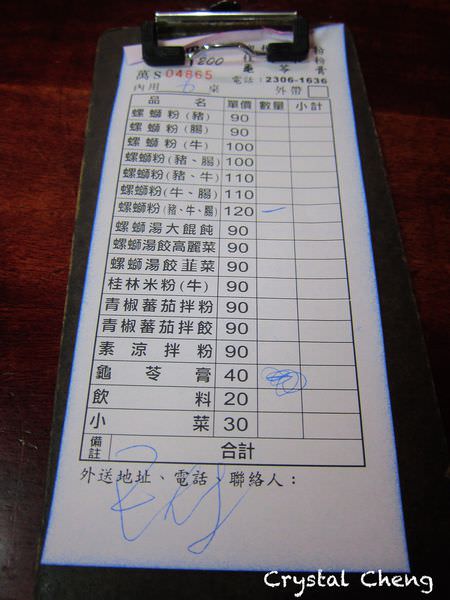 200
萬 S 04865 電話:2306-1636
內用 桌 外帶
品名 單價 數量 小計
螺螄粉(豬) 90
螺螄粉(腸) 90
螺螄粉(牛) 100
螺螄粉(豬、腸) 100
螺螄粉(豬、牛) 110
螺螄粉(牛、腸) 110
螺螄粉(豬、牛、腸) 120 一
螺螄湯大餛飩 90
螺螄湯餃高麗菜 90
螺螄湯餃韮菜 90
桂林米粉(牛) 90
青椒蕃茄拌粉 90
青椒蕃茄拌餃 90
素涼拌粉 90
龜苓膏 40
飲料 20
小菜 30
備註 合計
外送地址、電話、聯絡人:
Crystal Cheng